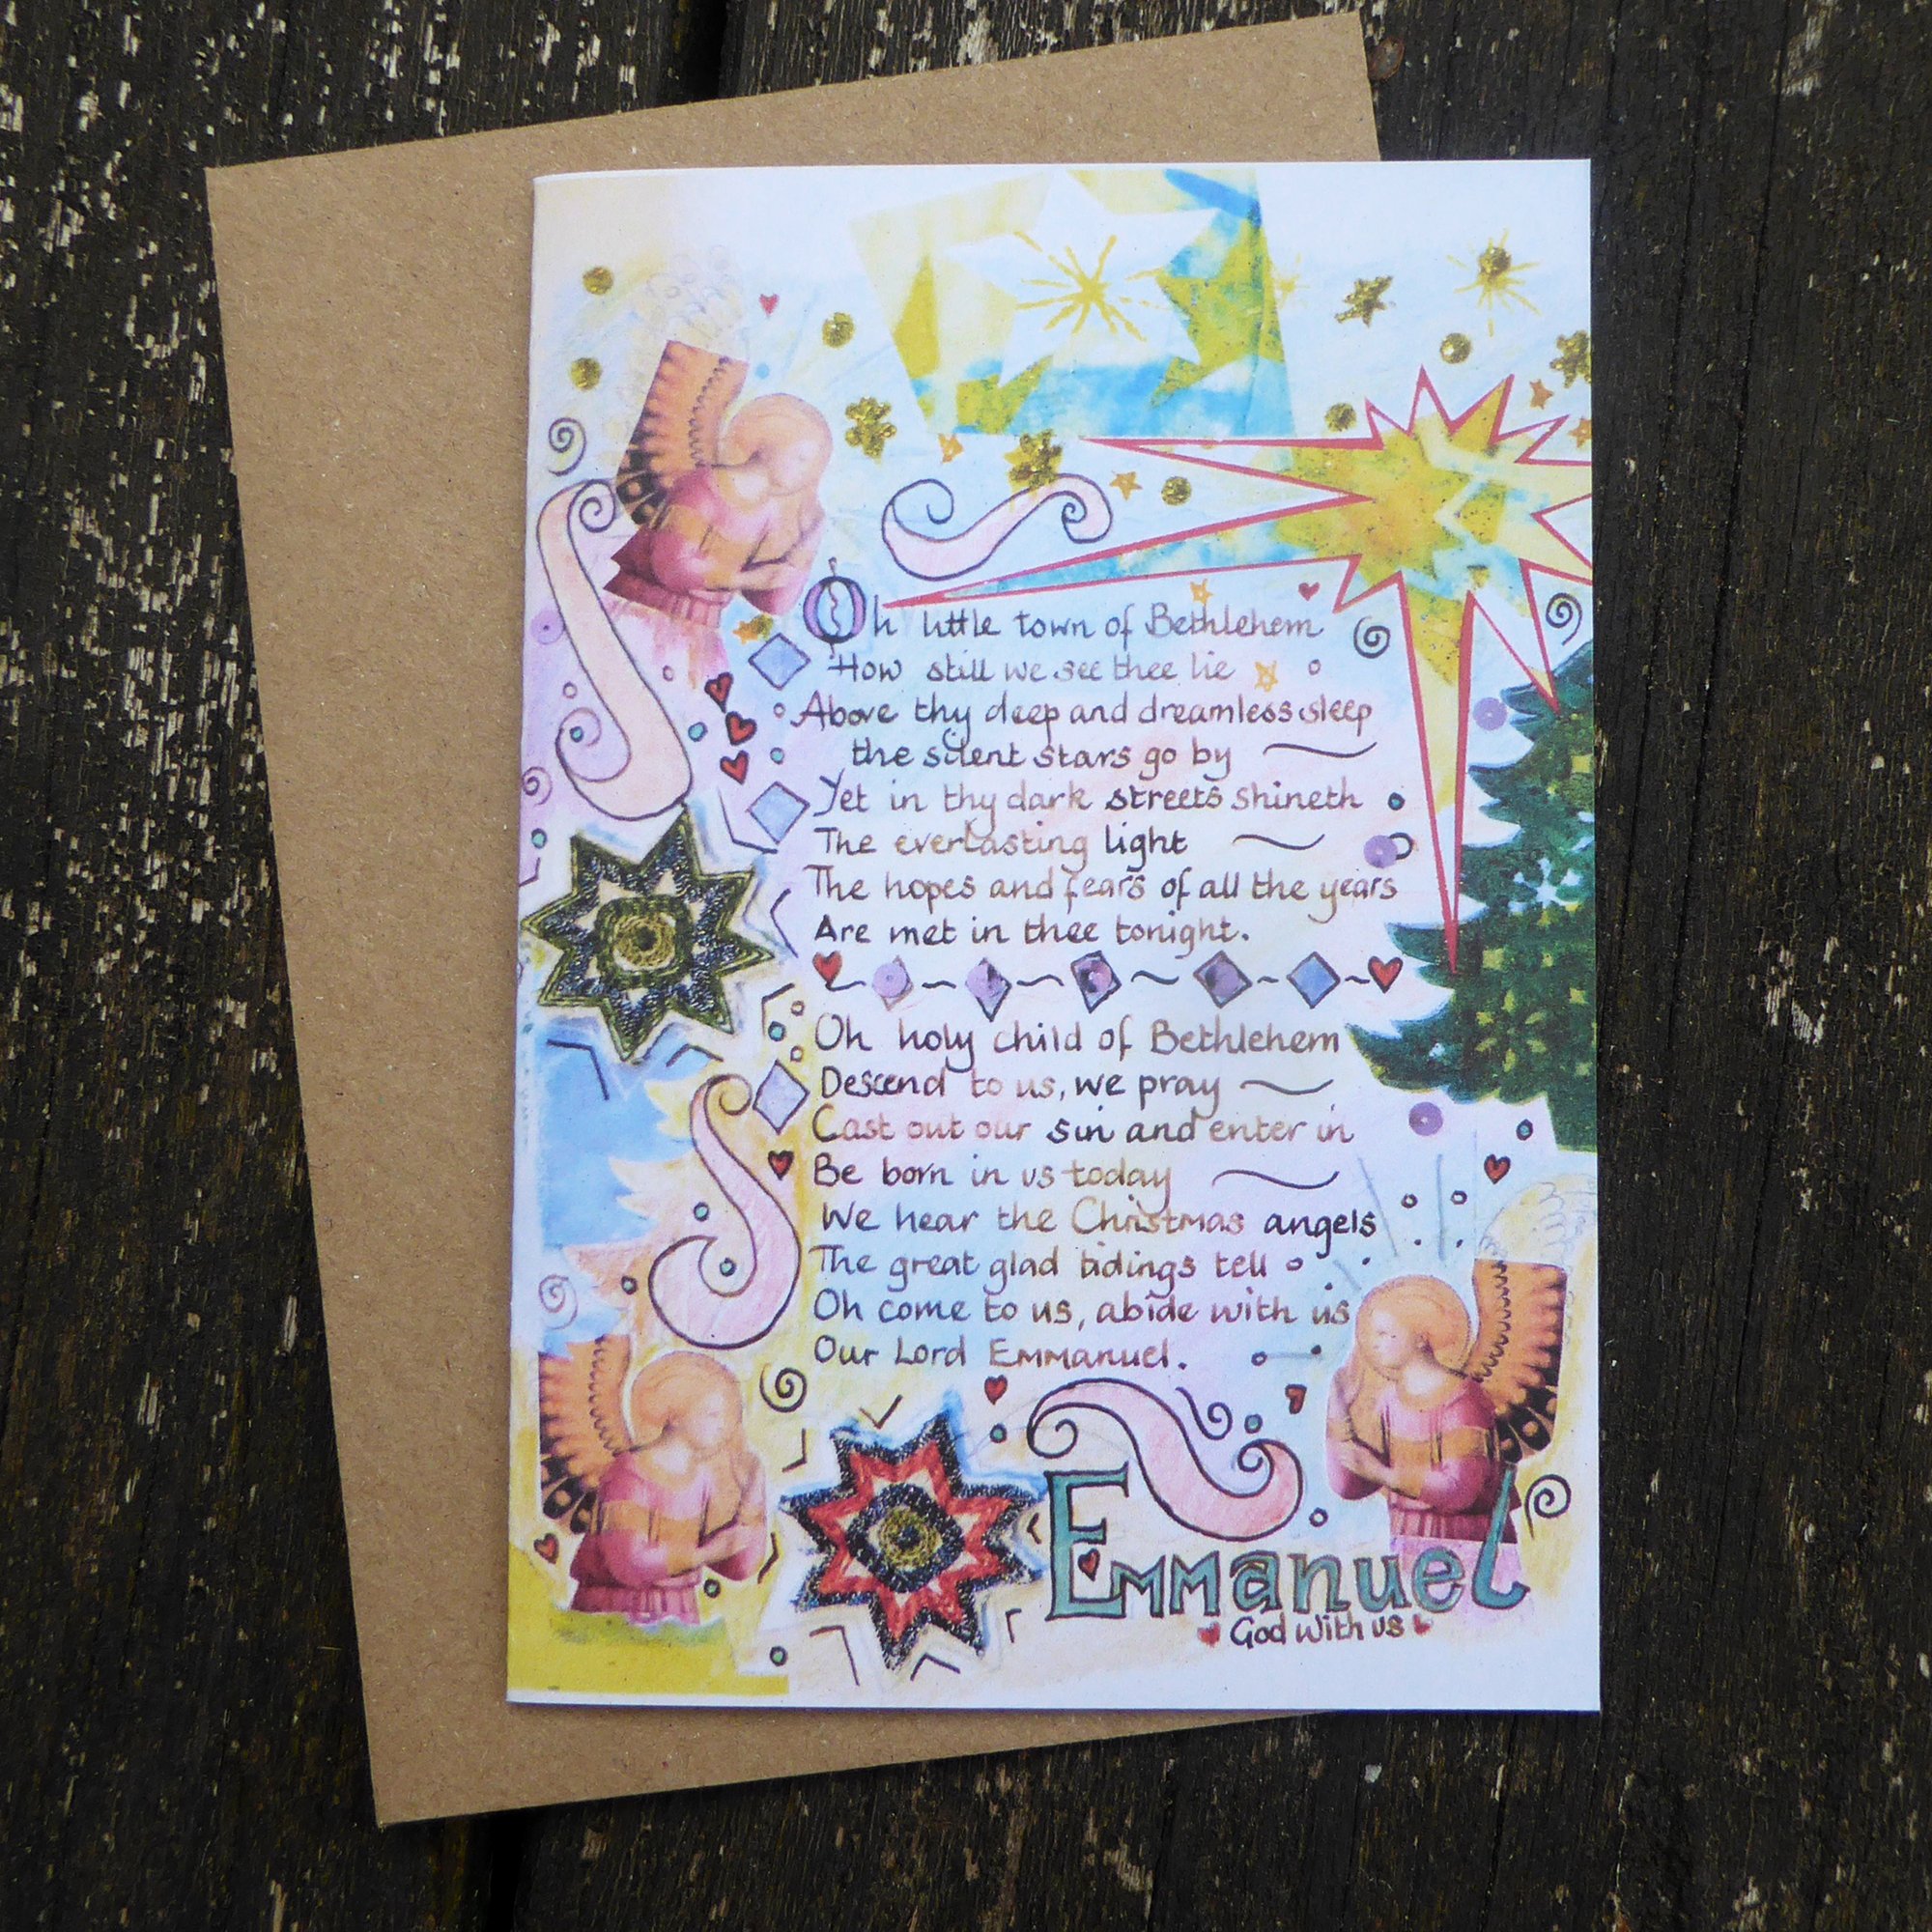 Oh little town of Bethlehem
How still we see thee lie
Above thy deep and dreamless sleep
the silent stars go by
Yet in thy dark streets shineth
The everlasting light
The hopes and fears of all the years
Are met in thee tonight.
Oh holy child of Bethlehem
Descend to us, we pray
Cast out our sin and enter in
Be born in us today
We hear the Christmas angels
The great glad tidings tell
Oh come to us, abide with us
Our Lord Emmanuel.
Emmanuel
God with us